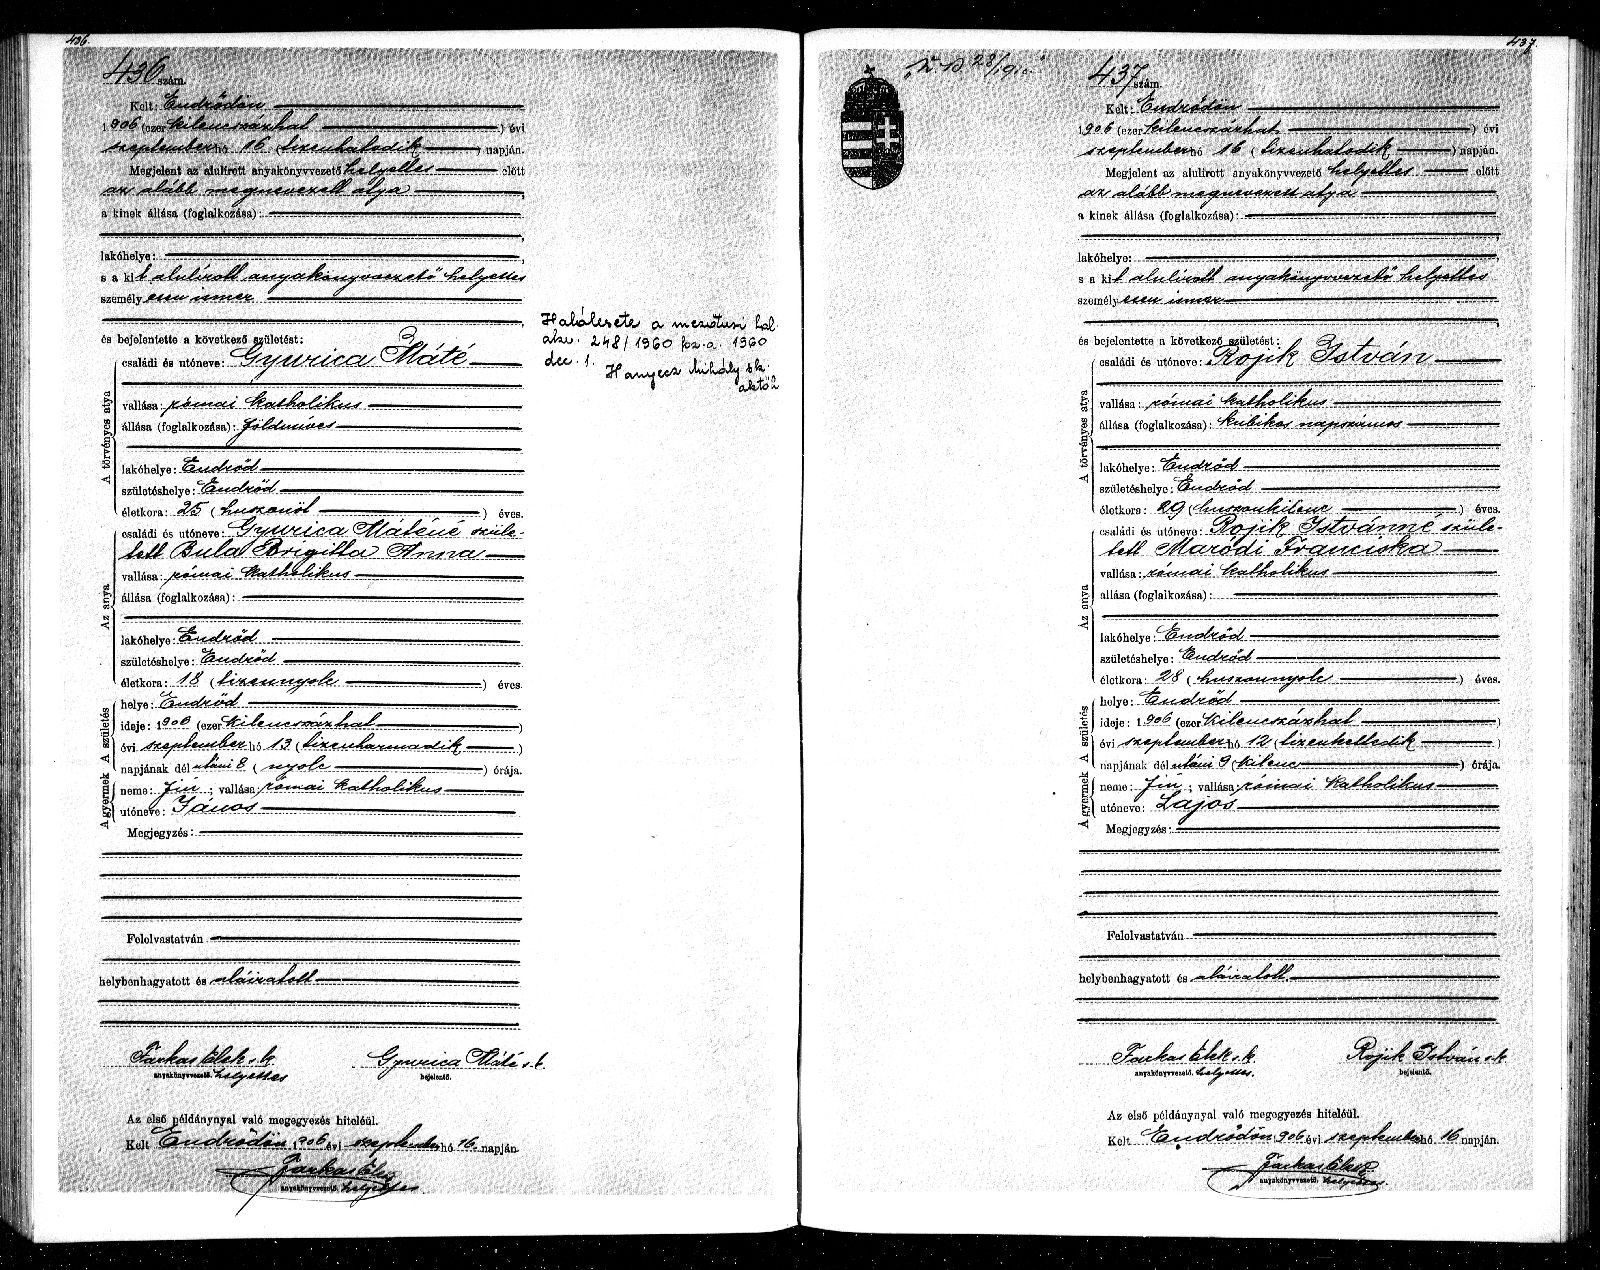 436.
436 szám.
Kelt: Endrődön
1906 (ezer kilenczszázhat ) évi
szeptember hó 16 (tizenhatodik ) napján.
Megjelent az alulirott anyakönyvvezető helyettes előtt
az alább megnevezett atya
a kinek állása (foglalkozása):
lakóhelye:
s a kit alulírott anyakönyvvezető helyettes
személyesen ismer
és bejelentette a következő születést:
A törvényes atya
családi és utóneve: Gyurica Máté
vallása: római katholikus
állása (foglalkozása): földmives
lakóhelye: Endrőd
születéshelye: Endrőd
életkora: 25 (huszonöt ) éves.
Az anya
családi és utóneve: Gyurica Máténé szüle-
tett Bula Brigitta Anna
vallása: római katholikus
állása (foglalkozása):
lakóhelye: Endrőd
születéshelye: Endrőd
életkora: 18 (tizennyolc ) éves.
A gyermek A születés
helye: Endrőd
ideje: 1906 (ezer kilenczszázhat )
évi szeptember hó 13 (tizenharmadik )
napjának dél utáni 8 (nyolc ) órája.
neme: fiú ; vallása: római katholikus
utóneve: János
Megjegyzés:
Felolvastatván
helybenhagyatott és aláiratott
Farkas Elek s.k. Gyurica Máté s.k.
anyakönyvvezető. helyettes bejelentő.
Az első példánynyal való megegyezés hiteléül.
Kelt Endrődön 1906 évi szeptember hó 16 napján.
Farkas Elek
anyakönyvvezető. helyettes
Halálesete a mezőturi hal.
akv. 248/1960 fsz. a. 1960
dec. 1.
Hanyecz Mihály sk.
437.
437 szám.
Kelt: Endrődön
1906 (ezer kilenczszázhat ) évi
szeptember hó 16 (tizenhatodik ) napján.
Megjelent az alulirott anyakönyvvezető helyettes előtt
az alább megnevezett atya
a kinek állása (foglalkozása):
lakóhelye:
s a kit alulírott anyakönyvvezető helyettes
személyesen ismer
és bejelentette a következő születést:
A törvényes atya
családi és utóneve: Rojik István
vallása: római katholikus
állása (foglalkozása): kubikos napszámos
lakóhelye: Endrőd
születéshelye: Endrőd
életkora: 29 (huszonkilenc ) éves.
Az anya
családi és utóneve: Rojik Istvánné szüle-
tett Maródi Franciska
vallása: római katholikus
állása (foglalkozása):
lakóhelye: Endrőd
születéshelye: Endrőd
életkora: 28 (huszonnyolc ) éves.
A gyermek A születés
helye: Endrőd
ideje: 1906 (ezer kilenczszázhat )
évi szeptember hó 12 (tizenkettedik )
napjának dél utáni 9 (kilenc ) órája.
neme: fiú ; vallása: római katholikus
utóneve: Lajos
Megjegyzés:
Felolvastatván
helybenhagyatott és aláiratott
Farkas Elek s.k. Rojik István s.k.
anyakönyvvezető. helyettes. bejelentő.
Az első példánynyal való megegyezés hiteléül.
Kelt Endrődön 1906 évi szeptember hó 16 napján.
Farkas Elek
anyakönyvvezető. helyettes.